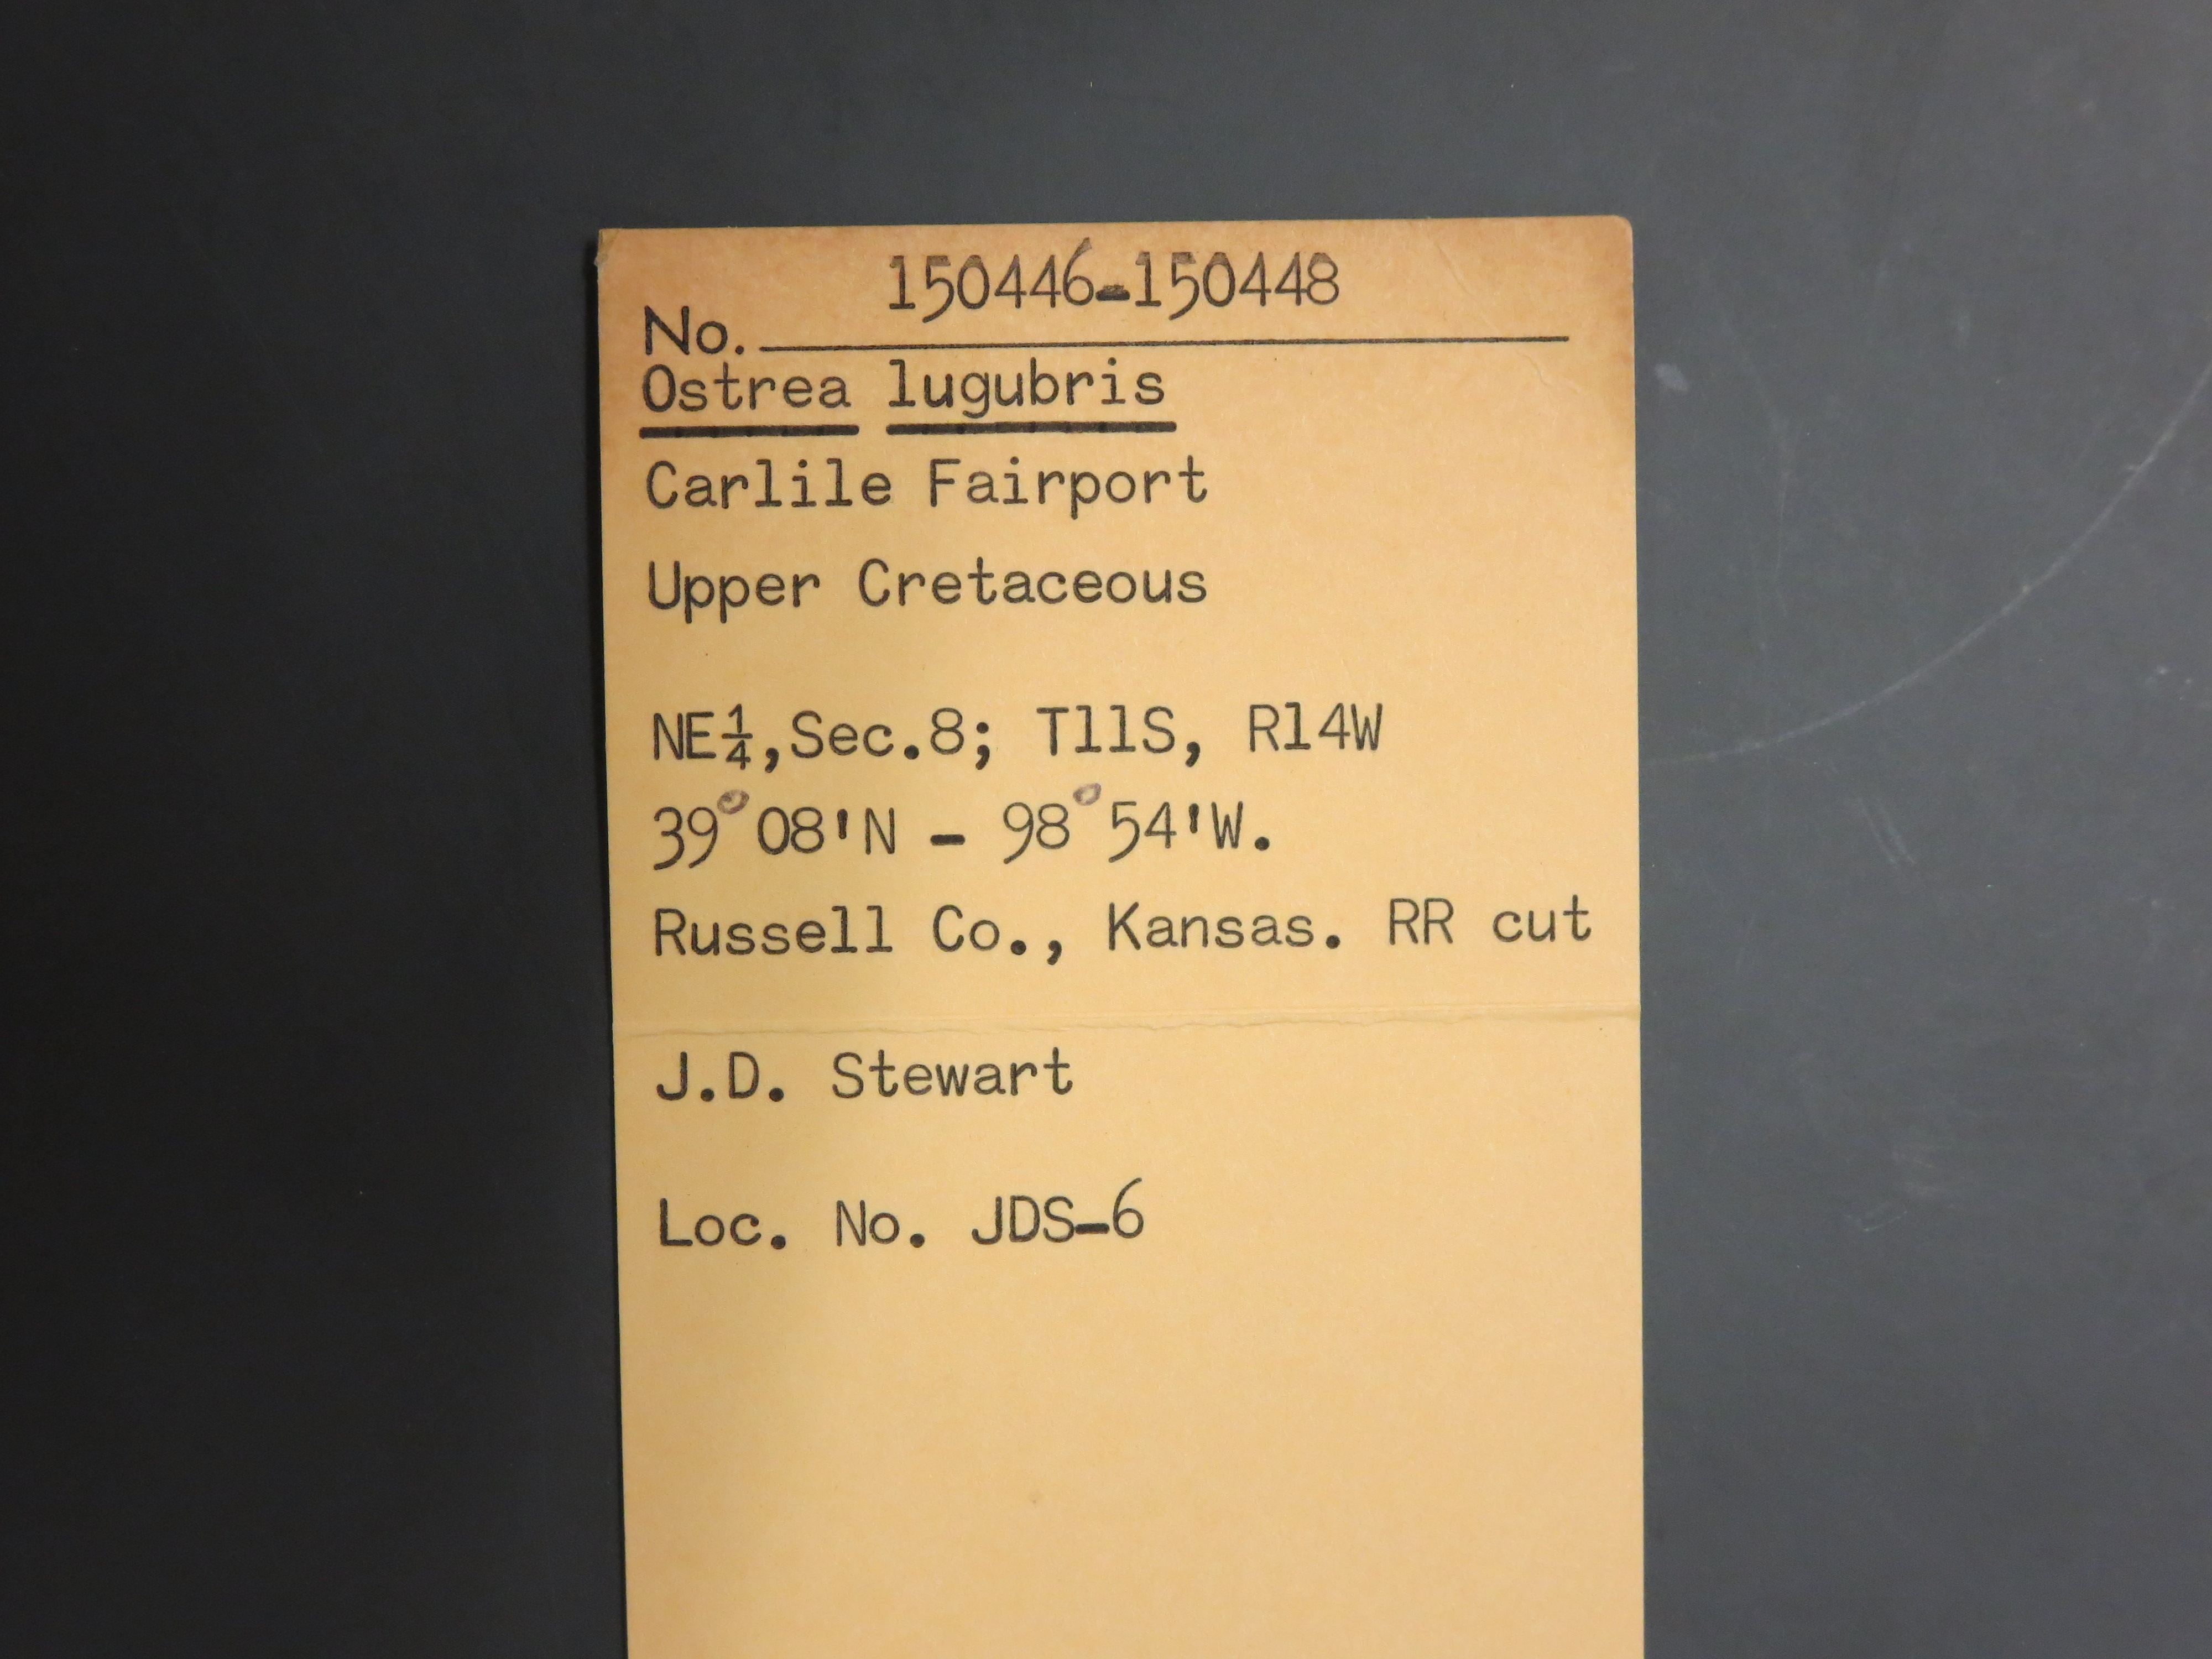 150446-150448
No.
Ostrea lugubris
Carlile Fairport
Upper Cretaceous
NE¼,Sec.8; T11S, R14W
39°08'N - 98°54'W.
Russell Co., Kansas. RR cut
J.D. Stewart
Loc. No. JDS-6